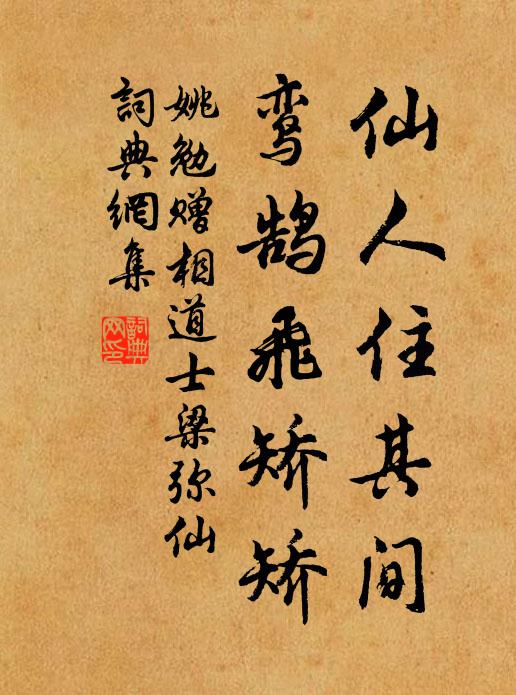 仙人住其间
鸾鹄飛矫矫
姚勉赠相道士梁弥仙
詞典網集
詞典網印